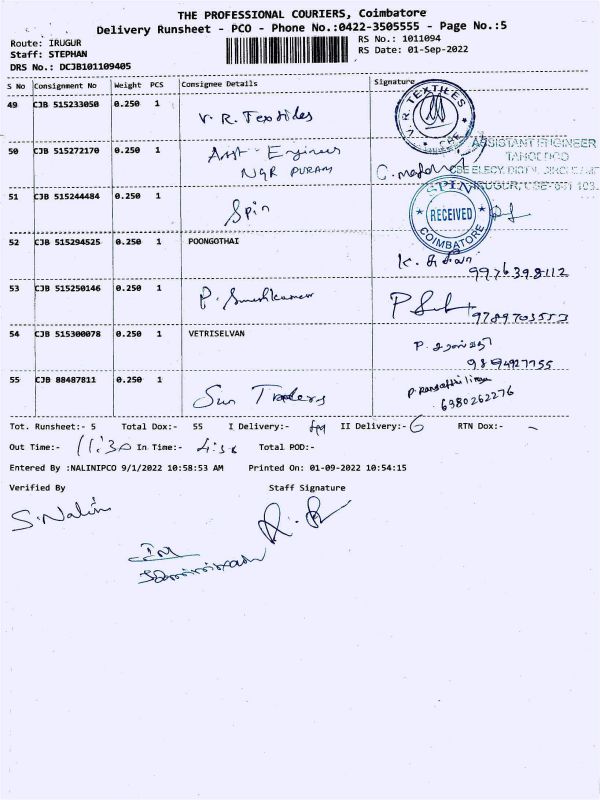 THE PROFESSIONAL COURIERS, Coimbatore
Delivery Runsheet - PCO - Phone No.:0422-3505555 - Page No.:5
Route: IRUGUR RS No.: 1011094
Staff: STEPHAN RS Date: 01-Sep-2022
DRS No.: DCJB101109405
S No Consignment No Weight PCS Consignee Details Signature
49 CJB 515233050 0.250 1 V. R. Textiles
V. R. TEXTILES CBE
50 CJB 515272170 0.250 1 Asst. Engineer
NGR PURAM
ASSISTANT ENGINEER
51 CJB 515244484 0.250 1 Spin
SPIN RECEIVED COIMBATORE
52 CJB 515294525 0.250 1 POONGOTHAI
9976398112
53 CJB 515250146 0.250 1 P. Sureshkumar
9789703553
54 CJB 515300078 0.250 1 VETRISELVAN
55 CJB 88487811 0.250 1 Sun Traders
6380262276
Tot. Runsheet:- 5 Total Dox:- 55 I Delivery:- 49 II Delivery:- 6 RTN Dox:- -
Out Time:- 11:30 In Time:- Total POD:-
Entered By :NALINIPCO 9/1/2022 10:58:53 AM Printed On: 01-09-2022 10:54:15
Verified By Staff Signature
S. Nalini